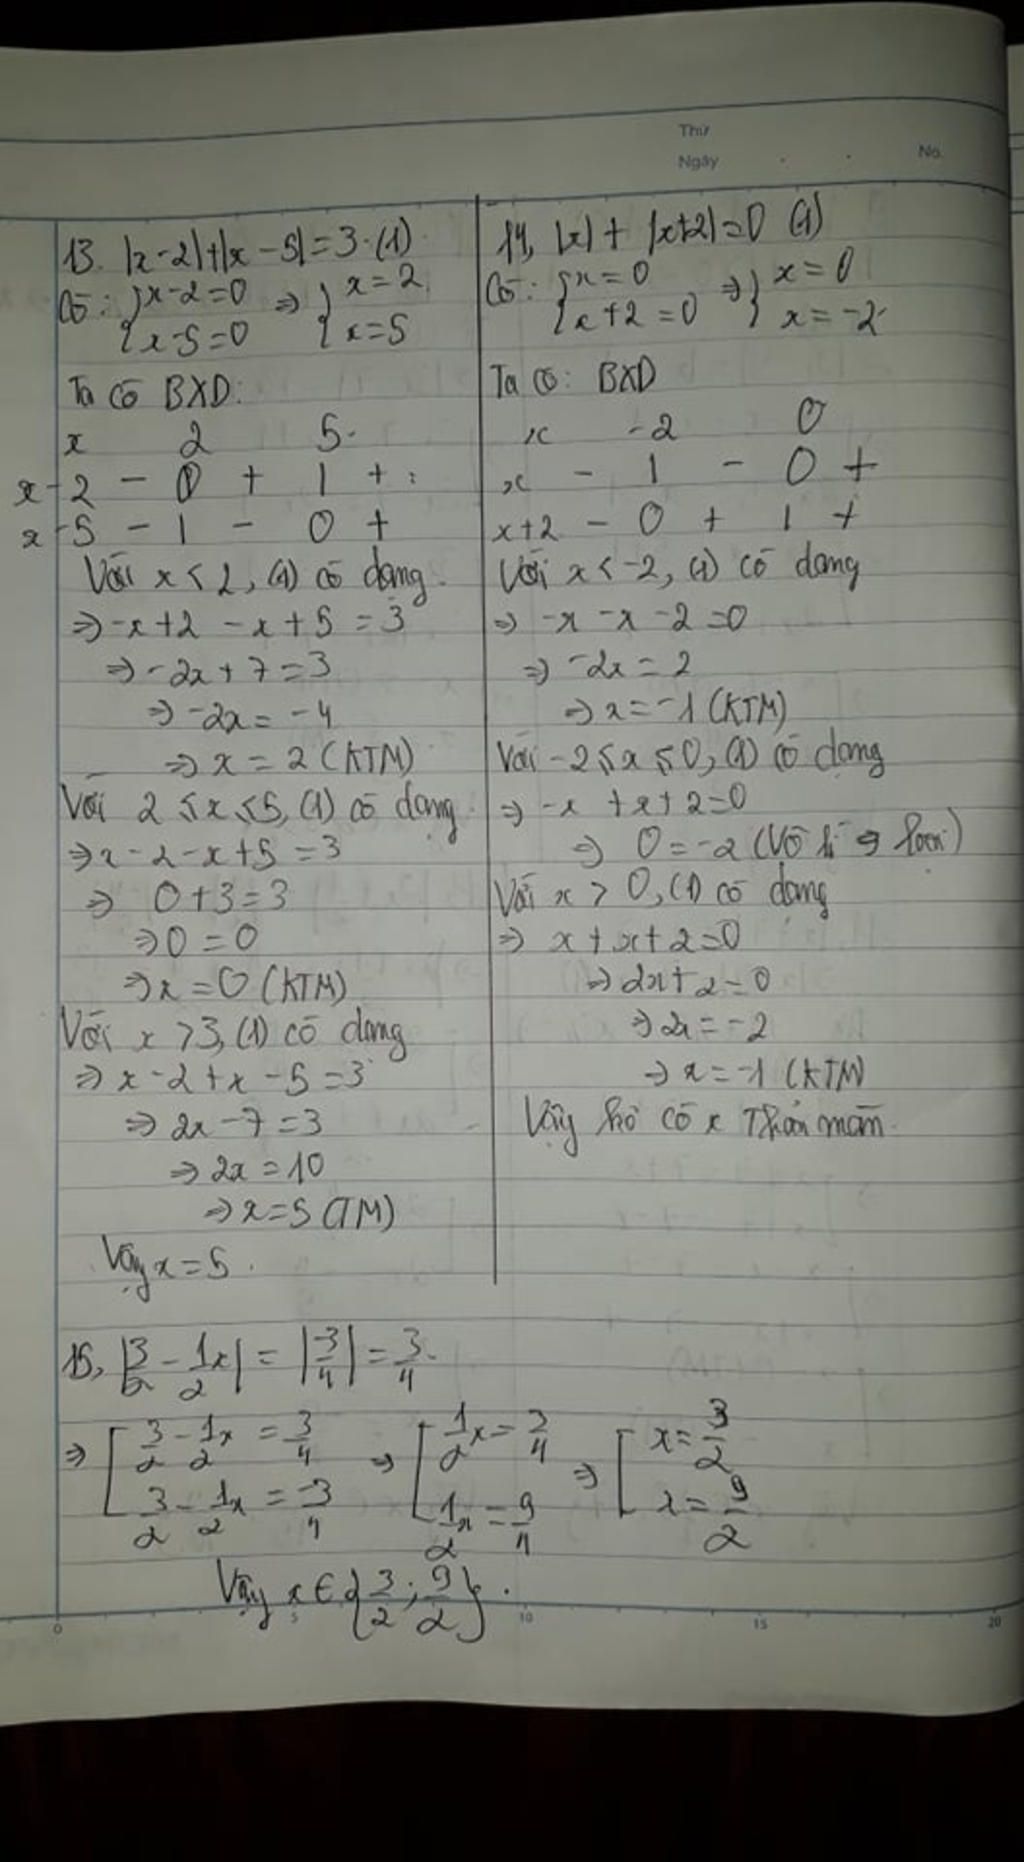 Thứ
Ngày
No.
13. |x-2|+|x-5|=3.(1)
Có: {x-2=0 ⇒ {x=2
{x-5=0 {x=5
Ta có BXD:
x 2 5
x-2 - 0 + 1 +
x-5 - 1 - 0 +
Với x<2, (1) có dạng
⇒ -x+2 -x+5 =3
⇒ -2x+7=3
⇒ -2x=-4
⇒ x=2 (KTM)
Với 2≤x≤5, (1) có dạng
⇒ x-2-x+5=3
⇒ 0+3=3
⇒ 0=0
⇒ x=0 (KTM)
Với x>3, (1) có dạng
⇒ x-2+x-5=3
⇒ 2x-7=3
⇒ 2x=10
⇒ x=5 (TM)
Vậy x=5.
14, |x|+|x+2|=0 (1)
Có: {x=0 ⇒ {x=0
{x+2=0 {x=-2
Ta có: BXD
x -2 0
x - 1 - 0 +
x+2 - 0 + 1 +
Với x<-2, (1) có dạng
⇒ -x-x-2=0
⇒ -2x=2
⇒ x=-1 (KTM)
Với -2≤x≤0, (1) có dạng
⇒ -x+x+2=0
⇒ 0=-2 (Vô lí ⇒ loại)
Với x>0, (1) có dạng
⇒ x+x+2=0
⇒ 2x+2=0
⇒ 2x=-2
⇒ x=-1 (KTM)
Vậy ko có x Thỏa mãn
15, |3/2 - 1/2x| = |-3/4| = 3/4
⇒ [3/2 - 1/2x = 3/4 ⇒ [1/2x = 3/4 ⇒ [x=3/2
[3/2 - 1/2x = -3/4 [1/2x = 9/4 [x=9/2
Vậy x∈{3/2; 9/2}.
0 5 10 15 20